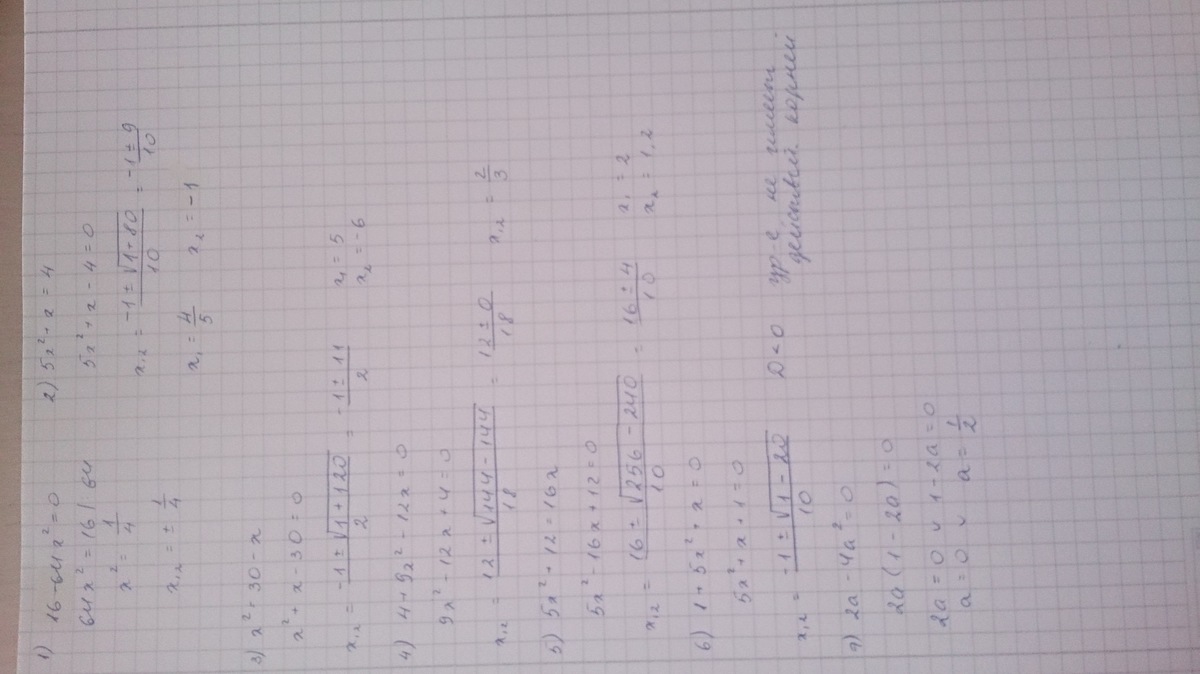 1) 16 - 64x² = 0
64x² = 16 | : 64
x² = 1/4
x₁,₂ = ± 1/4
2) 5x² + x = 4
5x² + x - 4 = 0
x₁,₂ = (-1 ± √(1 + 80))/10 = (-1 ± 9)/10
x₁ = 4/5 x₂ = -1
3) x² = 30 - x
x² + x - 30 = 0
x₁,₂ = (-1 ± √(1 + 120))/2 = (-1 ± 11)/2 x₁ = 5
x₂ = -6
4) 4 + 9x² - 12x = 0
9x² - 12x + 4 = 0
x₁,₂ = (12 ± √(144 - 144))/18 = (12 ± 0)/18 x₁,₂ = 2/3
5) 5x² + 12 = 16x
5x² - 16x + 12 = 0
x₁,₂ = (16 ± √(256 - 240))/10 = (16 ± 4)/10 x₁ = 2
x₂ = 1,2
6) 1 + 5x² + x = 0
5x² + x + 1 = 0
x₁,₂ = (-1 ± √(1 - 20))/10 D < 0 ур-е не имеет
действит корней
7) 2a - 4a² = 0
2a(1 - 2a) = 0
2a = 0 ∨ 1 - 2a = 0
a = 0 ∨ a = 1/2